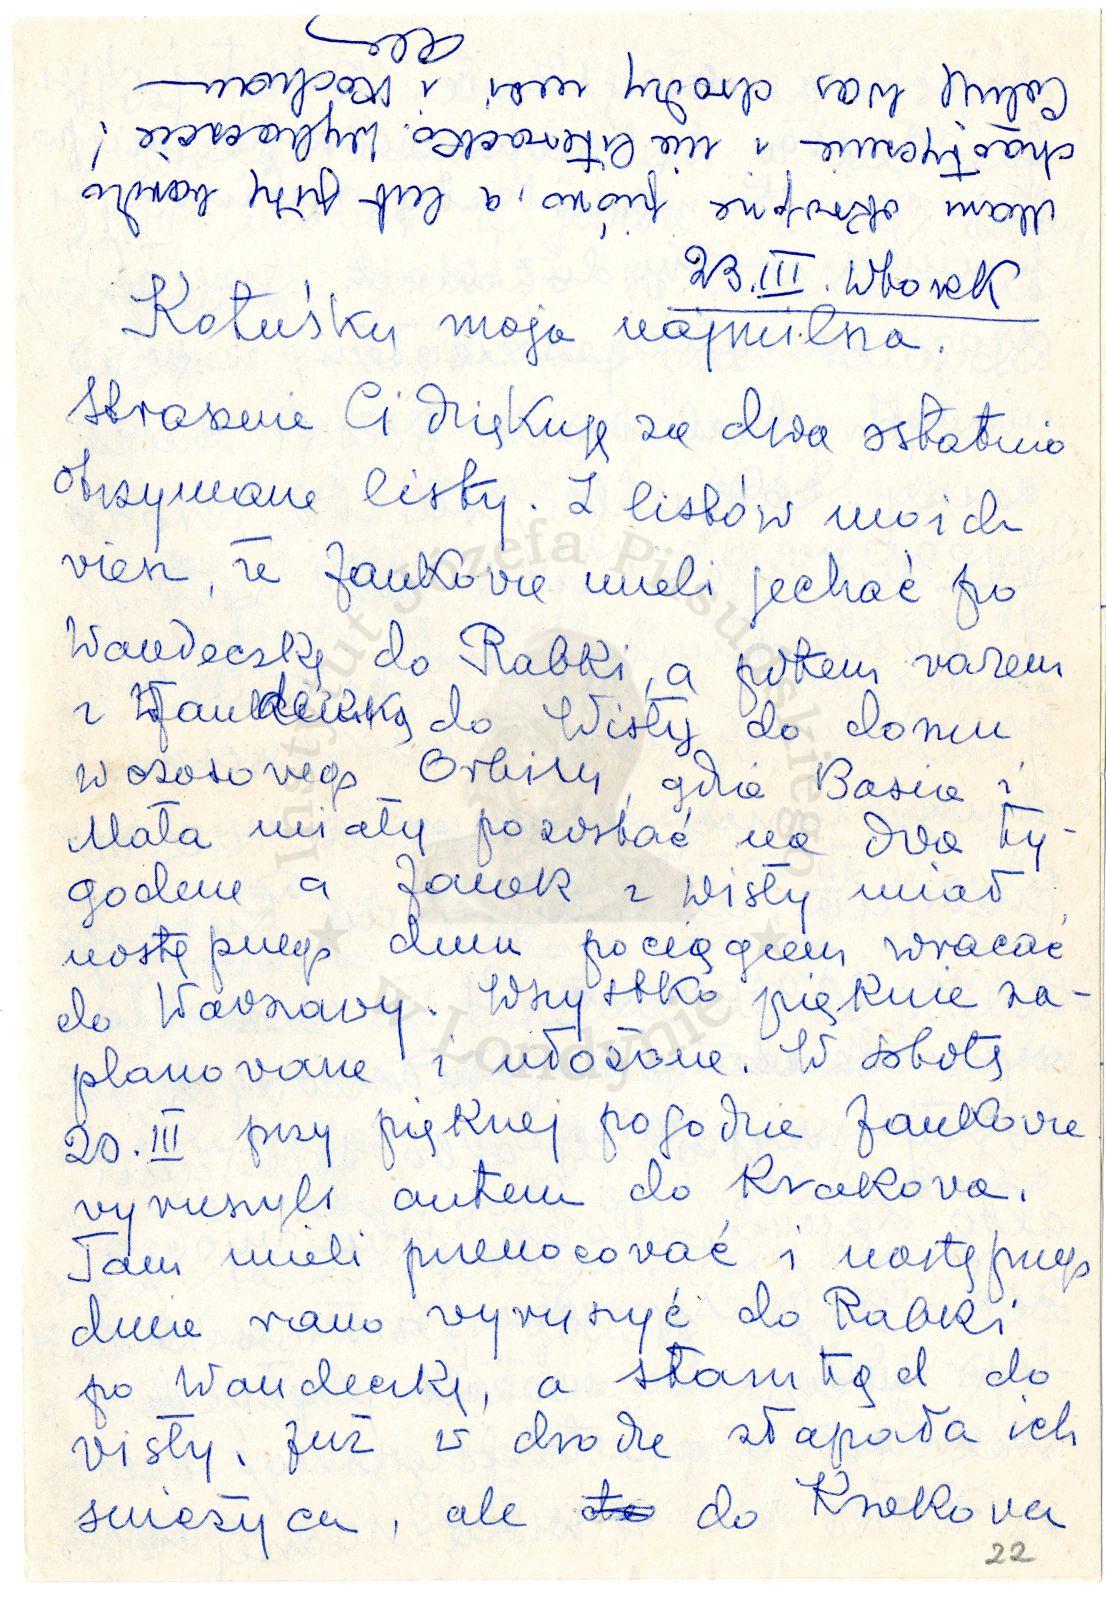 23.III. Wtorek
Kotuśku moja najmilsza.
Strasznie Ci dziękuję za dwa ostatnio
otrzymane listy. Z listów moich
wiesz, że Jankowie mieli jechać po
Wandeczkę do Rabki, a potem razem
z Wandeczką do Wisły do domu
wczasowego Orbisu, gdzie Basia i
Mała miały pozostać na dwa ty-
godnie a Janek z Wisły miał
następnego dnia pociągiem wracać
do Warszawy. Wszystko pięknie za-
planowane i ułożone. W sobotę
20.III przy pięknej pogodzie Jankowie
wyruszyli autem do Krakowa.
Tam mieli przenocować i następnego
dnia rano wyruszyć do Rabki
po Wandeczkę, a stamtąd do
Wisły. Już w drodze złapała ich
śnieżyca, ale do Krakowa
22
Mam okropne pióro, a list piszę bardzo
chaotycznie i nie literacko. Wybaczcie!
Całuję Was drodzy moi i kocham
Instytut Józefa Piłsudskiego
w Londynie